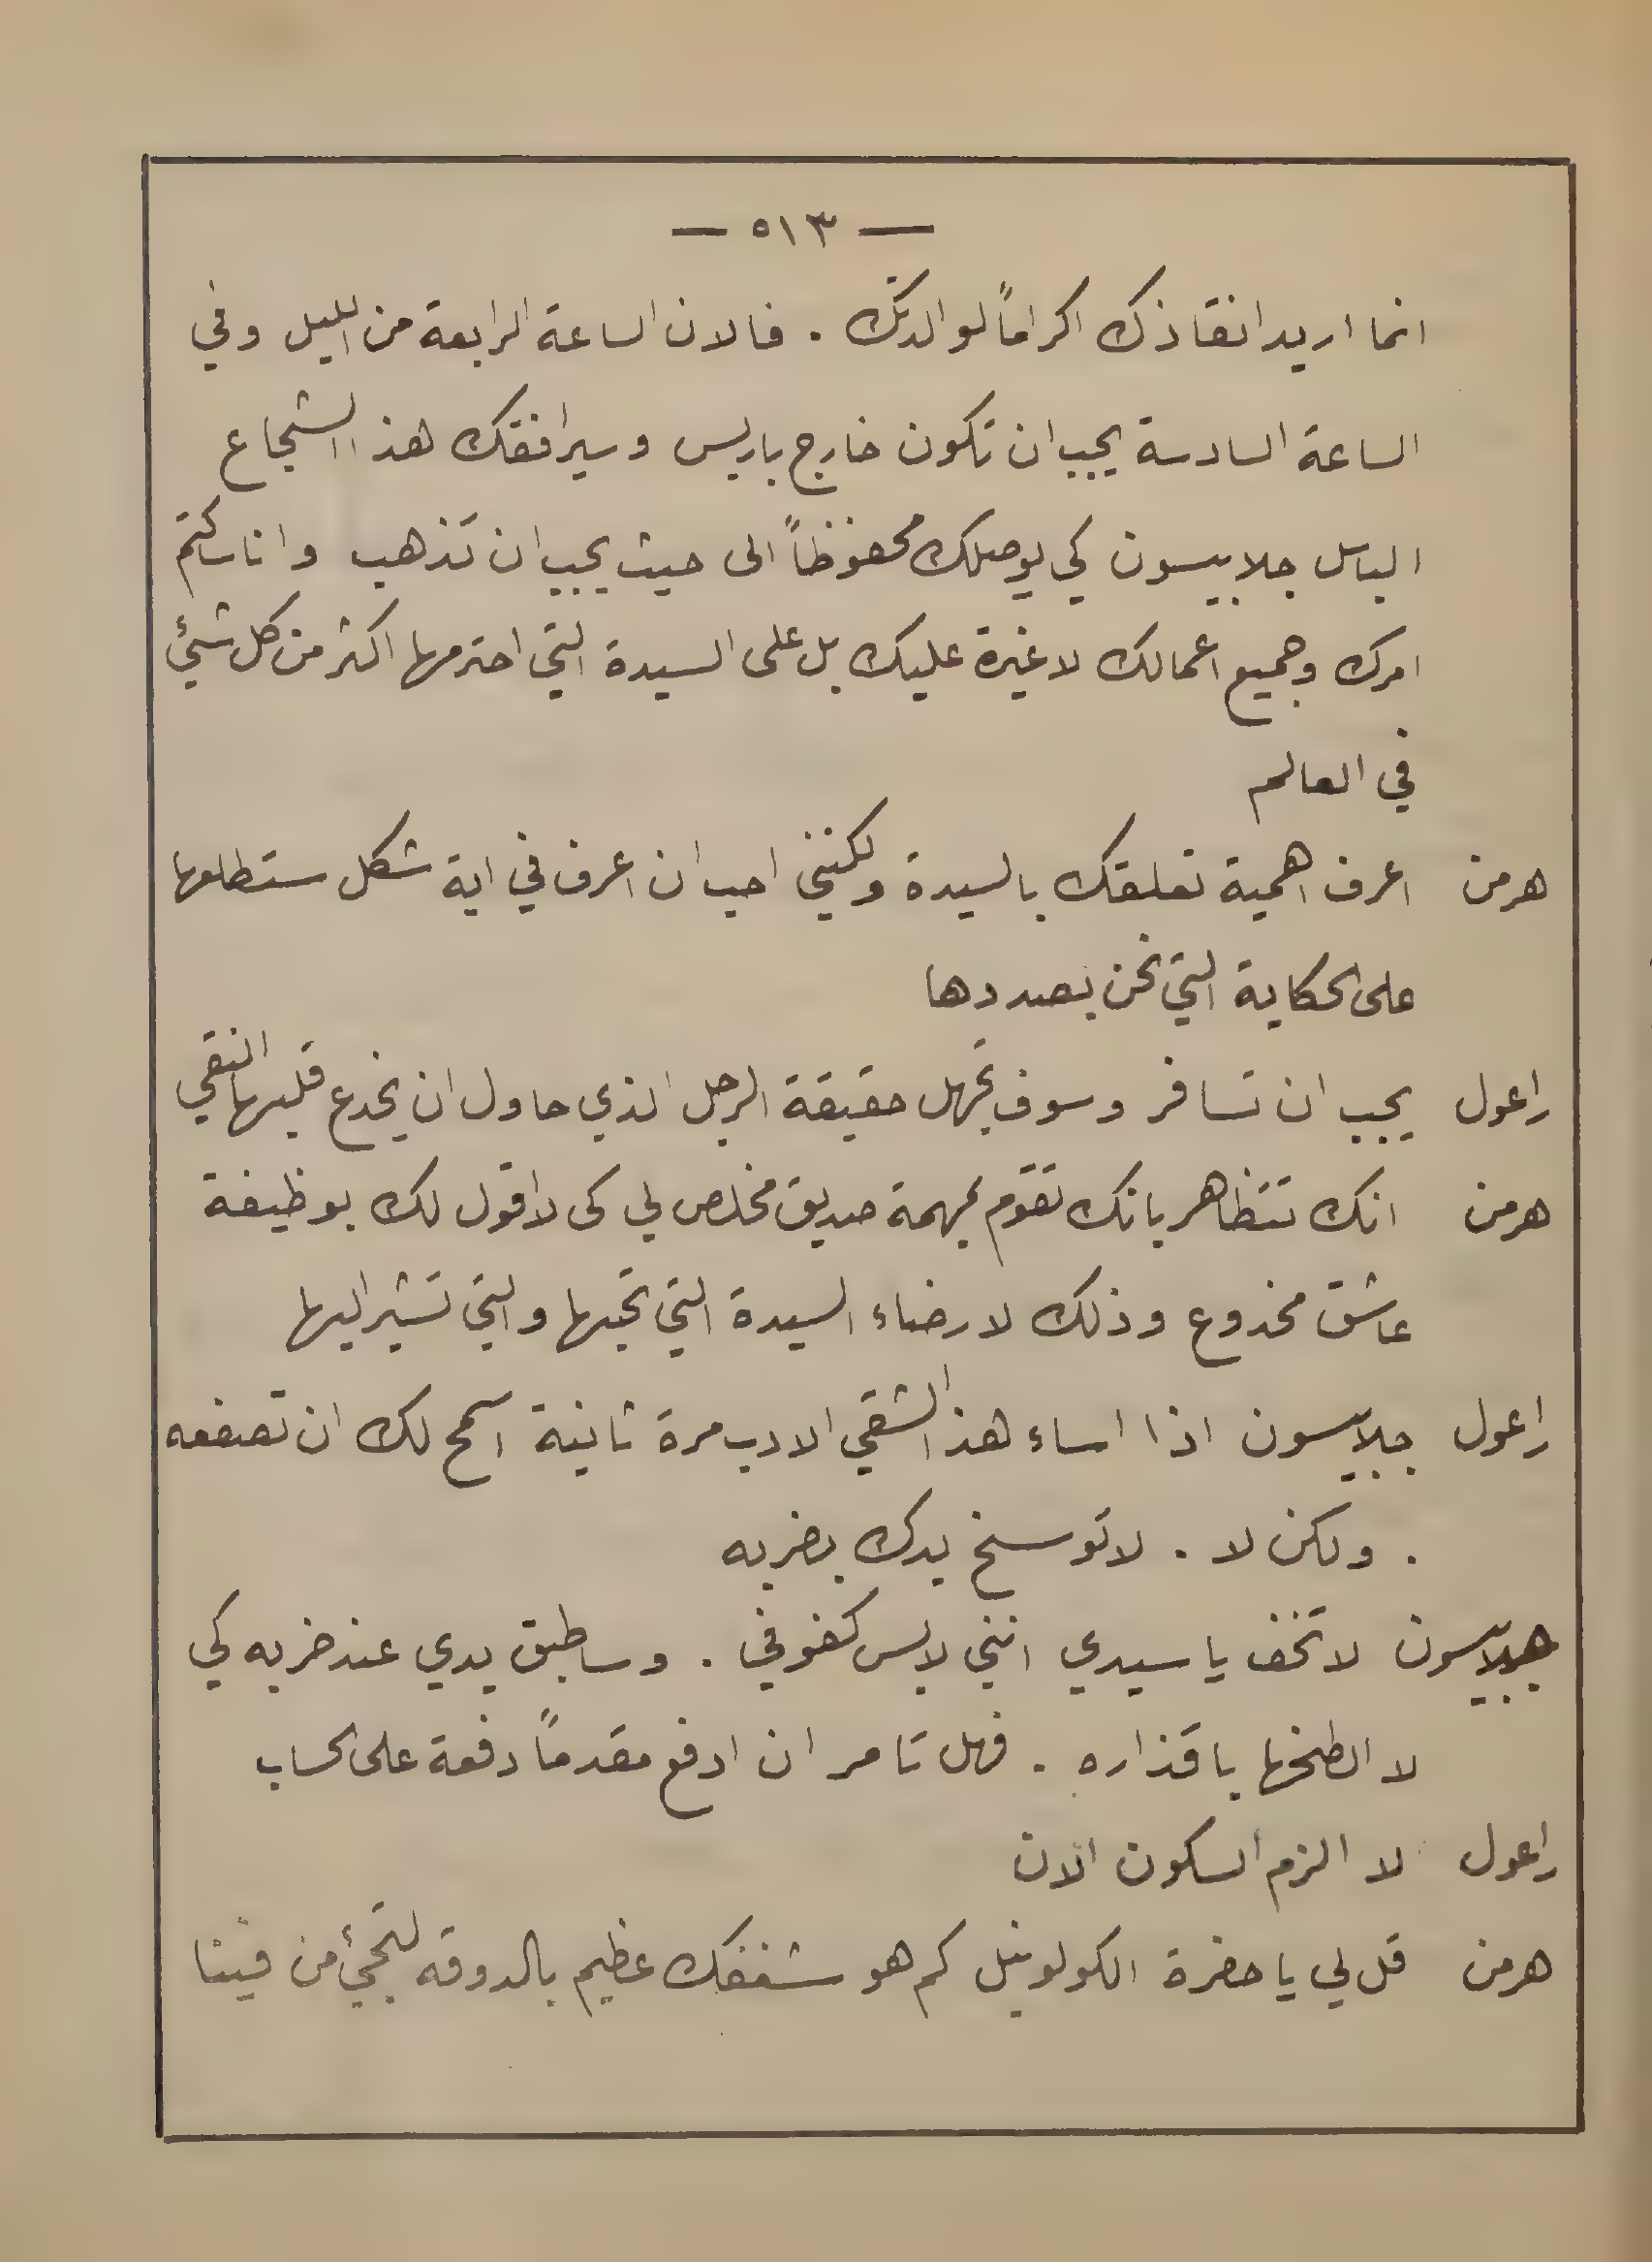 — ٥١٣ —
انما اريد انقاذك اكراماً لوالدتك . فالان الساعة الرابعة من الليل وفي
الساعة السادسة يجب ان تكون خارج باريس وسيرافقك هذا الشجاع
الباسل جلابيسون كي يوصلك محفوظاً الى حيث يجب ان تذهب وانا ساكتم
امرك وجميع اعمالك لا غيرة عليك بل على السيدة التي احترمها اكثر من كل شيئ
في العالم
هرمن اعرف اهمية تعلقك بالسيدة ولكنني احب ان اعرف في اية شكل ستطلعها
على الحكاية التي نحن بصددها
راعول يجب ان تسافر وسوف تجهل حقيقة الرجل الذي حاول ان يخدع قلبها النقي
هرمن انك تتظاهر بانك تقوم بمهمة صديق مخلص لي كى لا اقول لك بوظيفة
عاشق مخدوع وذلك لارضاء السيدة التي تحبها والتي تشير اليها
راعول جلابيسون اذا اساء هذا الشقي الادب مرة ثانية اسمح لك ان تصفعه
. ولكن لا . لا توسخ يدك بضربه
جيلابيسون لا تخف يا سيدي انني لابس كفوفي . وساطبق يدي عند ضربه كي
لا الطخها باقذاره . فهل تامر ان ادفع مقدماً دفعة على الحساب
راعول لا الزم السكون الان
هرمن قل لي يا حضرة الكولونيل كم هو شغفك عظيم بالدوقه لتجيئ من فيينا